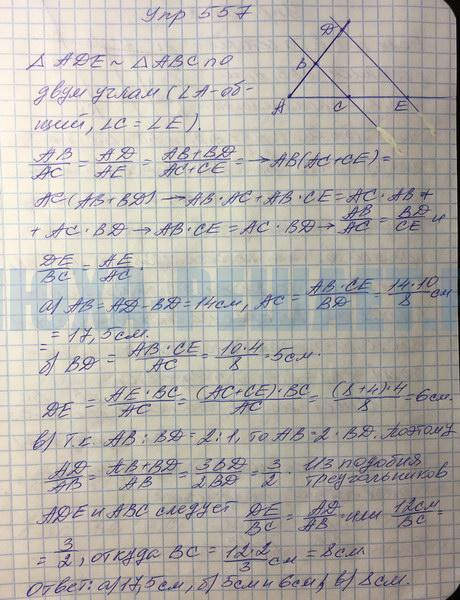 Упр 557
D
B
A
C
E
△ ADE ~ △ ABC по
двум углам (∠A-об-
щий, ∠C = ∠E).
AB/AC = AD/AE = AB+BD/AC+CE = → AB(AC+CE) =
AC(AB+BD) → AB·AC+AB·CE=AC·AB+
+ AC·BD → AB·CE = AC·BD → AB/AC = BD/CE и
DE/BC = AE/AC.
а) AB=AD-BD=14см, AC = AB·CE/BD = 14·10/8 см
= 17,5см.
б) BD = AB·CE/AC = 10·4/8 = 5см.
DE = AE·BC/AC = (AC+CE)·BC/AC = (8+4)·4/8 = 6см.
в) Т.к. AB:BD=2:1, то AB=2·BD. Поэтому
AD/AB = AB+BD/AB = 3BD/2BD = 3/2. Из подобия
треугольников
ADE и ABC следует DE/BC = AD/AB или 12см/BC =
= 3/2, откуда BC = 12·2/3 см = 8см
Ответ: а) 17,5см, б) 5см и 6см, в) 8см.